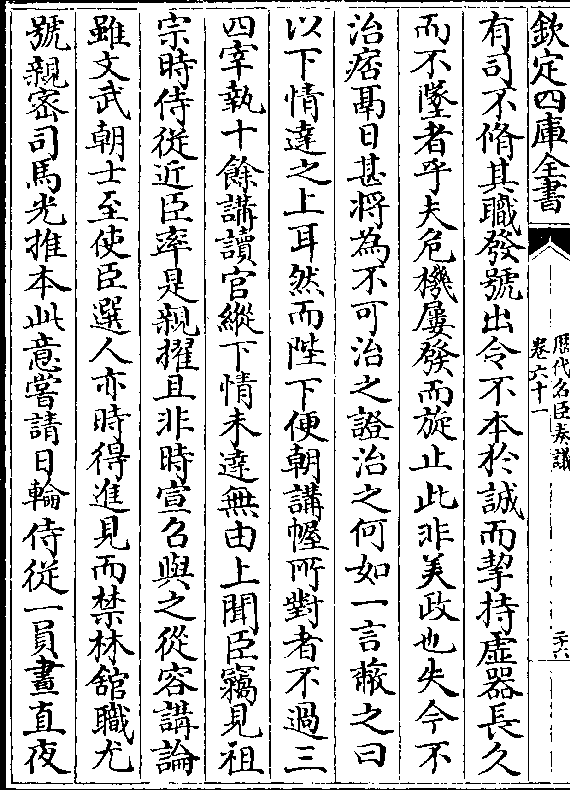 欽定四庫全書
歷代名臣奏議
卷六十一
二十六
有司不脩其職發號出令不本於誠而挈持虛器長久
而不墜者乎夫危機屢發而旋止此非美政也失今不
治痞鬲日甚將為不可治之證治之何如一言蔽之曰
以下情達之上耳然而陛下便朝講幄所對者不過三
四宰執十餘講讀官縱下情未達無由上聞臣竊見祖
宗時侍從近臣率是親擢且非時宣召與之從容講論
雖文武朝士至使臣選人亦時得進見而禁林舘職尤
號親密司馬光推本此意嘗請日輪侍從一員晝直夜